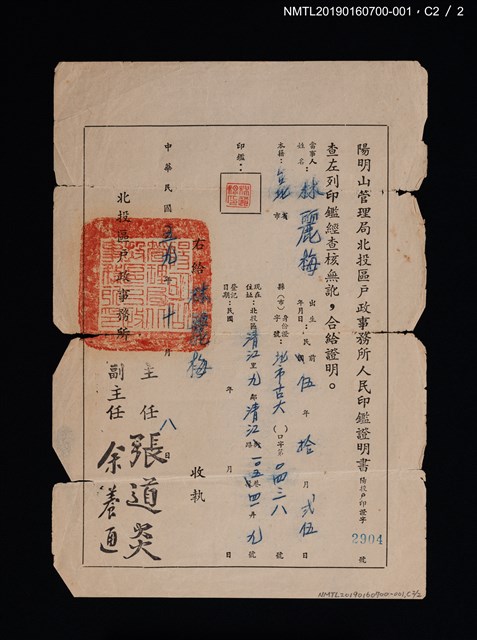 NMTL20190160700-001，C2 / 2
陽明山管理局北投區戶政事務所人民印鑑證明書 陽投戶印證字 2904 號
查左列印鑑經查核無訛，合給證明。
當事人姓名：林麗梅 出生年月日：民前國 伍年 拾月 弍伍日
本籍：台北省市 縣（市） 身份證字號：北市古大（ ）口字第〇四三八號
現在住址：北投區清江里九鄰清江路 號
登記日期：民國 年 月 日
印鑑：
右給 林麗梅 收執
中華民國五九年十月八日
北投區戶政事務所
主任 張道炎
副主任 余養通
NMTL20190160700-001,C2/2